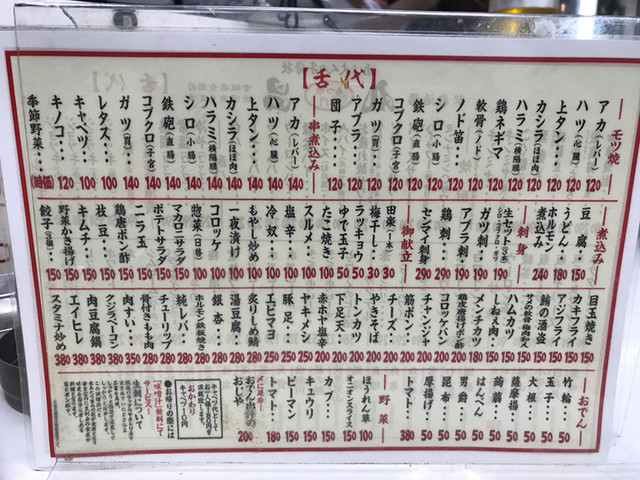 【舌代】
モツ焼
アカ(レバー) 120
ハツ(心臓) 120
上タン‥ 120
カシラ(ほほ肉) 120
ハラミ(横隔膜) 120
鶏ネギマ 120
軟骨(ノド) 120
ノド笛‥ 120
シロ(小腸) 120
鉄砲(直腸) 120
コブクロ(子宮) 120
ガツ(胃) 120
アブラ 120
団子 120
串煮込み
アカ(レバー) 140
ハツ(心臓) 140
上タン‥ 140
カシラ(ほほ肉) 140
ハラミ(横隔膜) 140
シロ(小腸) 140
鉄砲(直腸) 140
コブクロ(子宮) 140
ガツ(胃) 140
レタス‥ 100
キャベツ 100
キノコ‥ 120
季節野菜‥(時価)
煮込み
豆腐‥ 150
うどん‥ 180
ホルモン煮込み 240
刺身
生セット 190
ガツ刺‥ 190
アブラ刺‥ 190
鶏刺‥ 290
センマイ刺身 290
御献立
田楽(一本) 30
梅干し‥ 30
ラッキョウ 50
ゆで玉子 50
たこ焼き 100
スルメ‥ 100
塩辛‥ 100
冷奴‥ 100
もやし炒め 100
一夜漬け 100
コロッケ 100
惣菜(日替) 100
マカロニサラダ 150
ポテトサラダ 150
ニラ玉 150
鶏唐ポン酢 150
枝豆‥ 150
キムチ‥ 150
野菜かき揚げ 150
餃子 150
目玉焼き 150
カキフライ 150
アジフライ 150
鮪の酒盗 150
サメの軟骨梅肉和え 150
ハムカツ 150
しねぇ肉‥ 150
メンチカツ 150
鶏皮唐揚げポン酢
コロッケパン 200
チャンジャ 200
筋ポン‥ 200
チーズ‥ 200
やきそば 200
トンカツ 200
下足天‥ 200
赤ホヤ塩辛 200
ヤキメシ 250
豚足‥ 250
エビマヨ 250
炙りしめ鯖 250
湯豆腐‥ 250
銀杏‥ 280
ホルモン鉄板焼き 280
純レバ‥ 280
チューリップ 280
骨付きもも肉 280
肉すい‥ 350
タンシラベーコン 350
肉豆腐鍋 380
エイヒレ 380
スタミナ炒め 380
おでん
竹輪‥ 50
玉子‥ 50
大根‥ 50
薩摩揚‥ 50
蒟蒻‥ 50
はんぺん 50
男爵‥ 50
昆布‥ 50
厚揚げ‥ 50
トマト‥ 380
野菜
ほうれん草 100
オニオンスライス 150
カブ‥ 150
キュウリ 150
ピーマン 150
トマト‥ 180
〆に是非!
おでん出汁のおじや 200
キャベツ代として
お一人様100円
頂戴致します
おかわり
キャベツ10円
●お帰りの際には
「味噌汁」無料にて
サービス!
生肉について